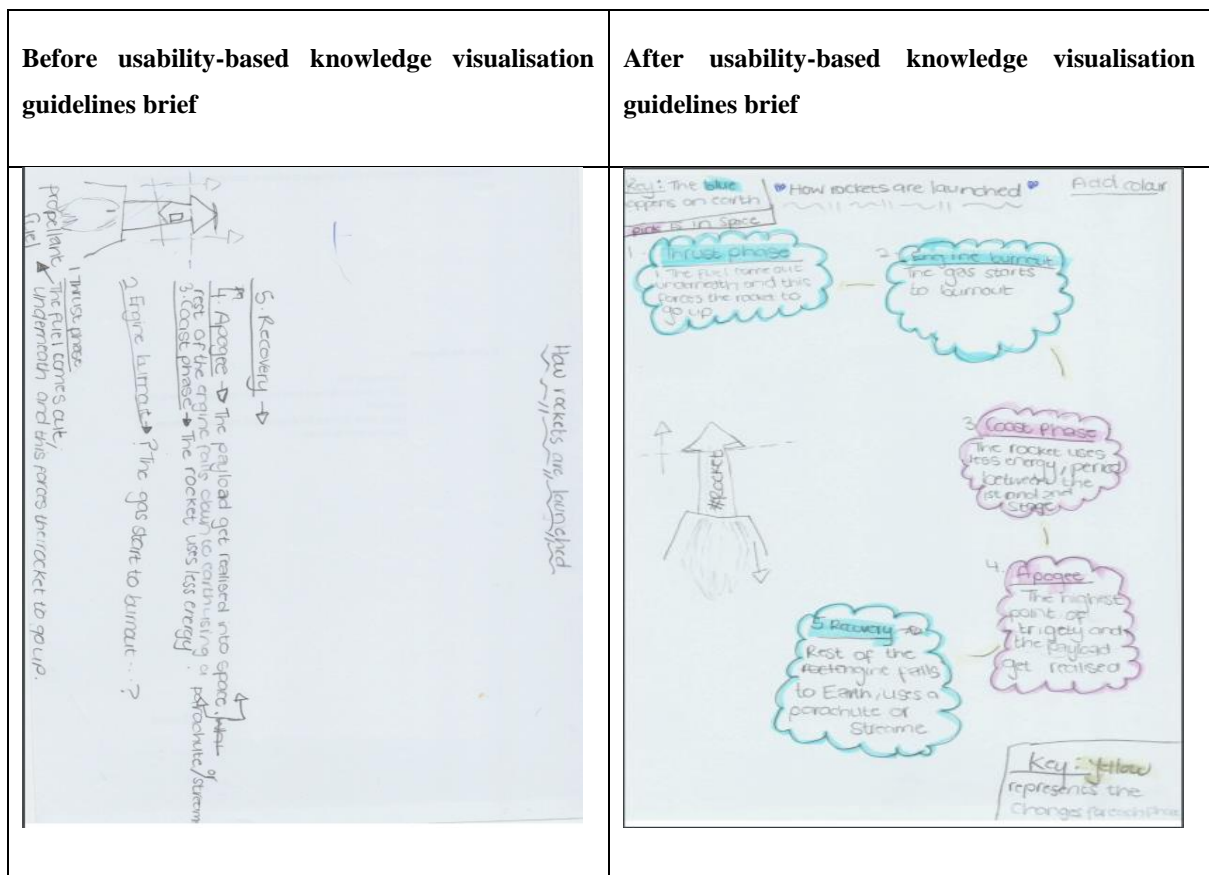 Before usability-based knowledge visualisation
guidelines brief
After usability-based knowledge visualisation
guidelines brief
How rockets are launched
5. Recovery →
4. Apogee → The payload get realised into space. or
rest of the engine falls down to earth using a parachute/stream
3. Coast phase → The rocket uses less energy.
2. Engine burnout → ? The gas start to burnout...?
1 Thrust phase
The fuel comes out,
underneath and this forces the rocket to go up.
propellant
fuel
Key: The blue
appens on earth
pick is in Space
How rockets are launched
Add colour
1. Thrust phase
1. The fuel come out
underneath and this
forces the rocket to
go up
2. Engine burnout
The gas starts
to burnout
3 Coast Phase
The rocket uses
less energy, period
between the
1st and 2nd
Stage
#ROCKET
4. Apogee
The highest
point of
trigety and
the payload
get realised
5 Recovery →
Rest of the
engine falls
to Earth, uses a
parachute or
Streame
Key: Yellow
represents the
Changes for each phase